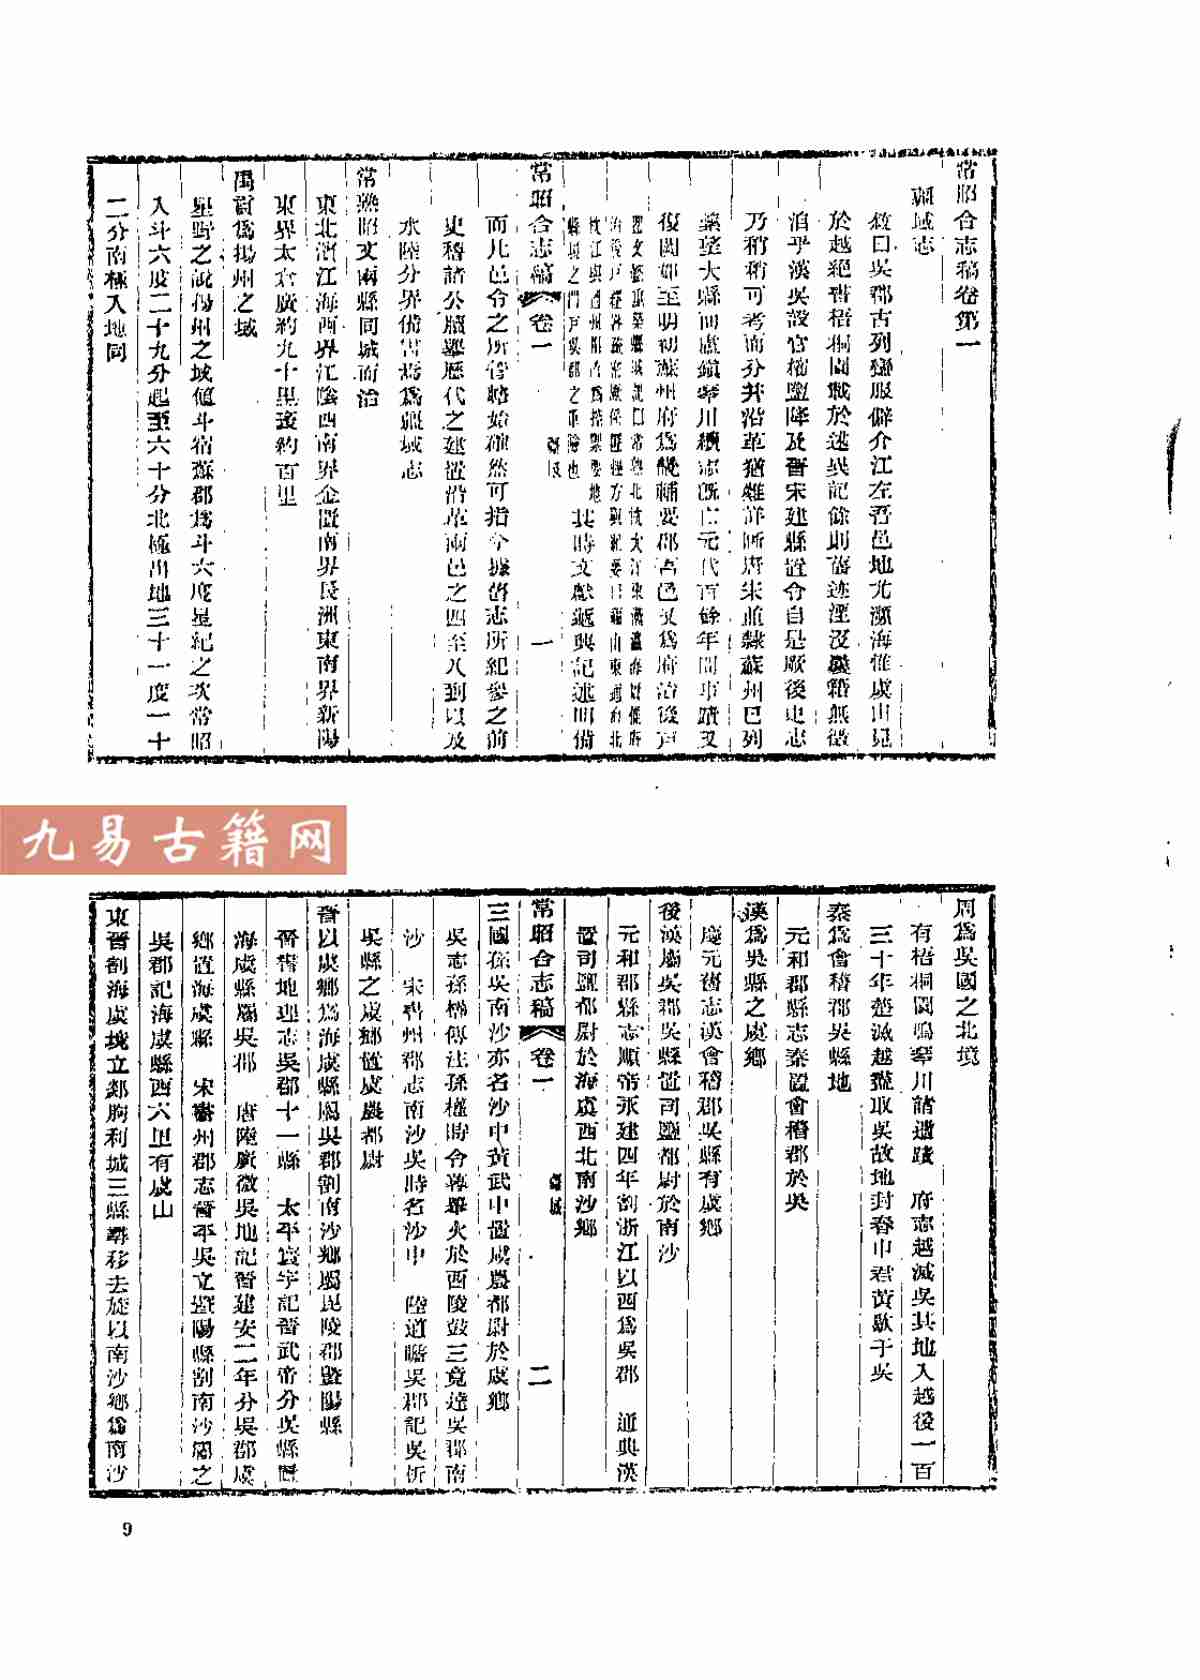 常昭合志稿卷第一
疆域志
敘曰吳郡古列蠻服僻介江左吾邑地尤瀕海惟虞山見
於越絕書梧桐園載於述吳記餘則舊迹湮沒載籍無徵
洎乎漢吳設官榷鹽降及晉宋建縣置令自是厥後史志
乃稍稍可考而分幷沿革猶難詳晰唐宋並隸蘇州巳列
緊望大縣而盧鎮琴川續志旣亡元代百餘年間事蹟又
復闕如至明初蘇州府爲畿輔要郡吾邑又爲府治後戶
常熟北
方輿紀要曰福山東通
江與
縣境之門戶吳郡之重險也
其時文獻遞興記述明備
常昭合志稿 卷一 疆域 一
而凡邑令之所管轄始確然可指今據舊志所紀參之前
史稽諸公牘舉歷代之建置沿革兩邑之四至八到以及
水陸分界備書焉爲疆域志
常熟昭文兩縣同城而治
東北濱江海西界江陰西南界金匱南界長洲東南界新陽
東界太倉廣約九十里袤約百里
禹貢爲揚州之域
星野之說揚州之域値斗宿蘇郡爲斗六度星紀之次常昭
入斗六度二十九分起至六十分北極出地三十一度一十
二分南極入地同
九易古籍网
周爲吳國之北境
有梧桐園鳴琴川諸遺蹟 府志越滅吳其地入越後一百
三十年楚滅越盡取吳故地封春申君黃歇于吳
秦爲會稽郡吳縣地
元和郡縣志秦置會稽郡於吳
漢爲吳縣之虞鄉
慶元舊志漢會稽郡吳縣有虞鄉
後漢屬吳郡吳縣置司鹽都尉於南沙
元和郡縣志順帝永建四年割浙江以西爲吳郡 通典漢
置司鹽都尉於海虞西北南沙鄉
常昭合志稿 卷一 疆域 二
三國孫吳南沙亦名沙中黃武中置虞農都尉於虞鄉
吳志孫權傳注孫權時令暮舉火於西陵鼓三竟達吳郡南
沙 宋書州郡志南沙吳時名沙中 陸道瞻吳郡記吳析
吳縣之虞鄉置虞農都尉
晉以虞鄉爲海虞縣屬吳郡割南沙鄉屬毘陵郡暨陽縣
晉書地理志吳郡十一縣 太平寰宇記晉武帝分吳縣置
海虞縣屬吳郡 唐陸廣微吳地記晉建安二年分吳郡虞
鄉置海虞縣 宋書州郡志晉平吳立暨陽縣割南沙屬之
吳郡記海虞縣西六里有虞山
東晉割海虞境立郯朐利城三縣尋移去旋以南沙鄉爲南沙
9